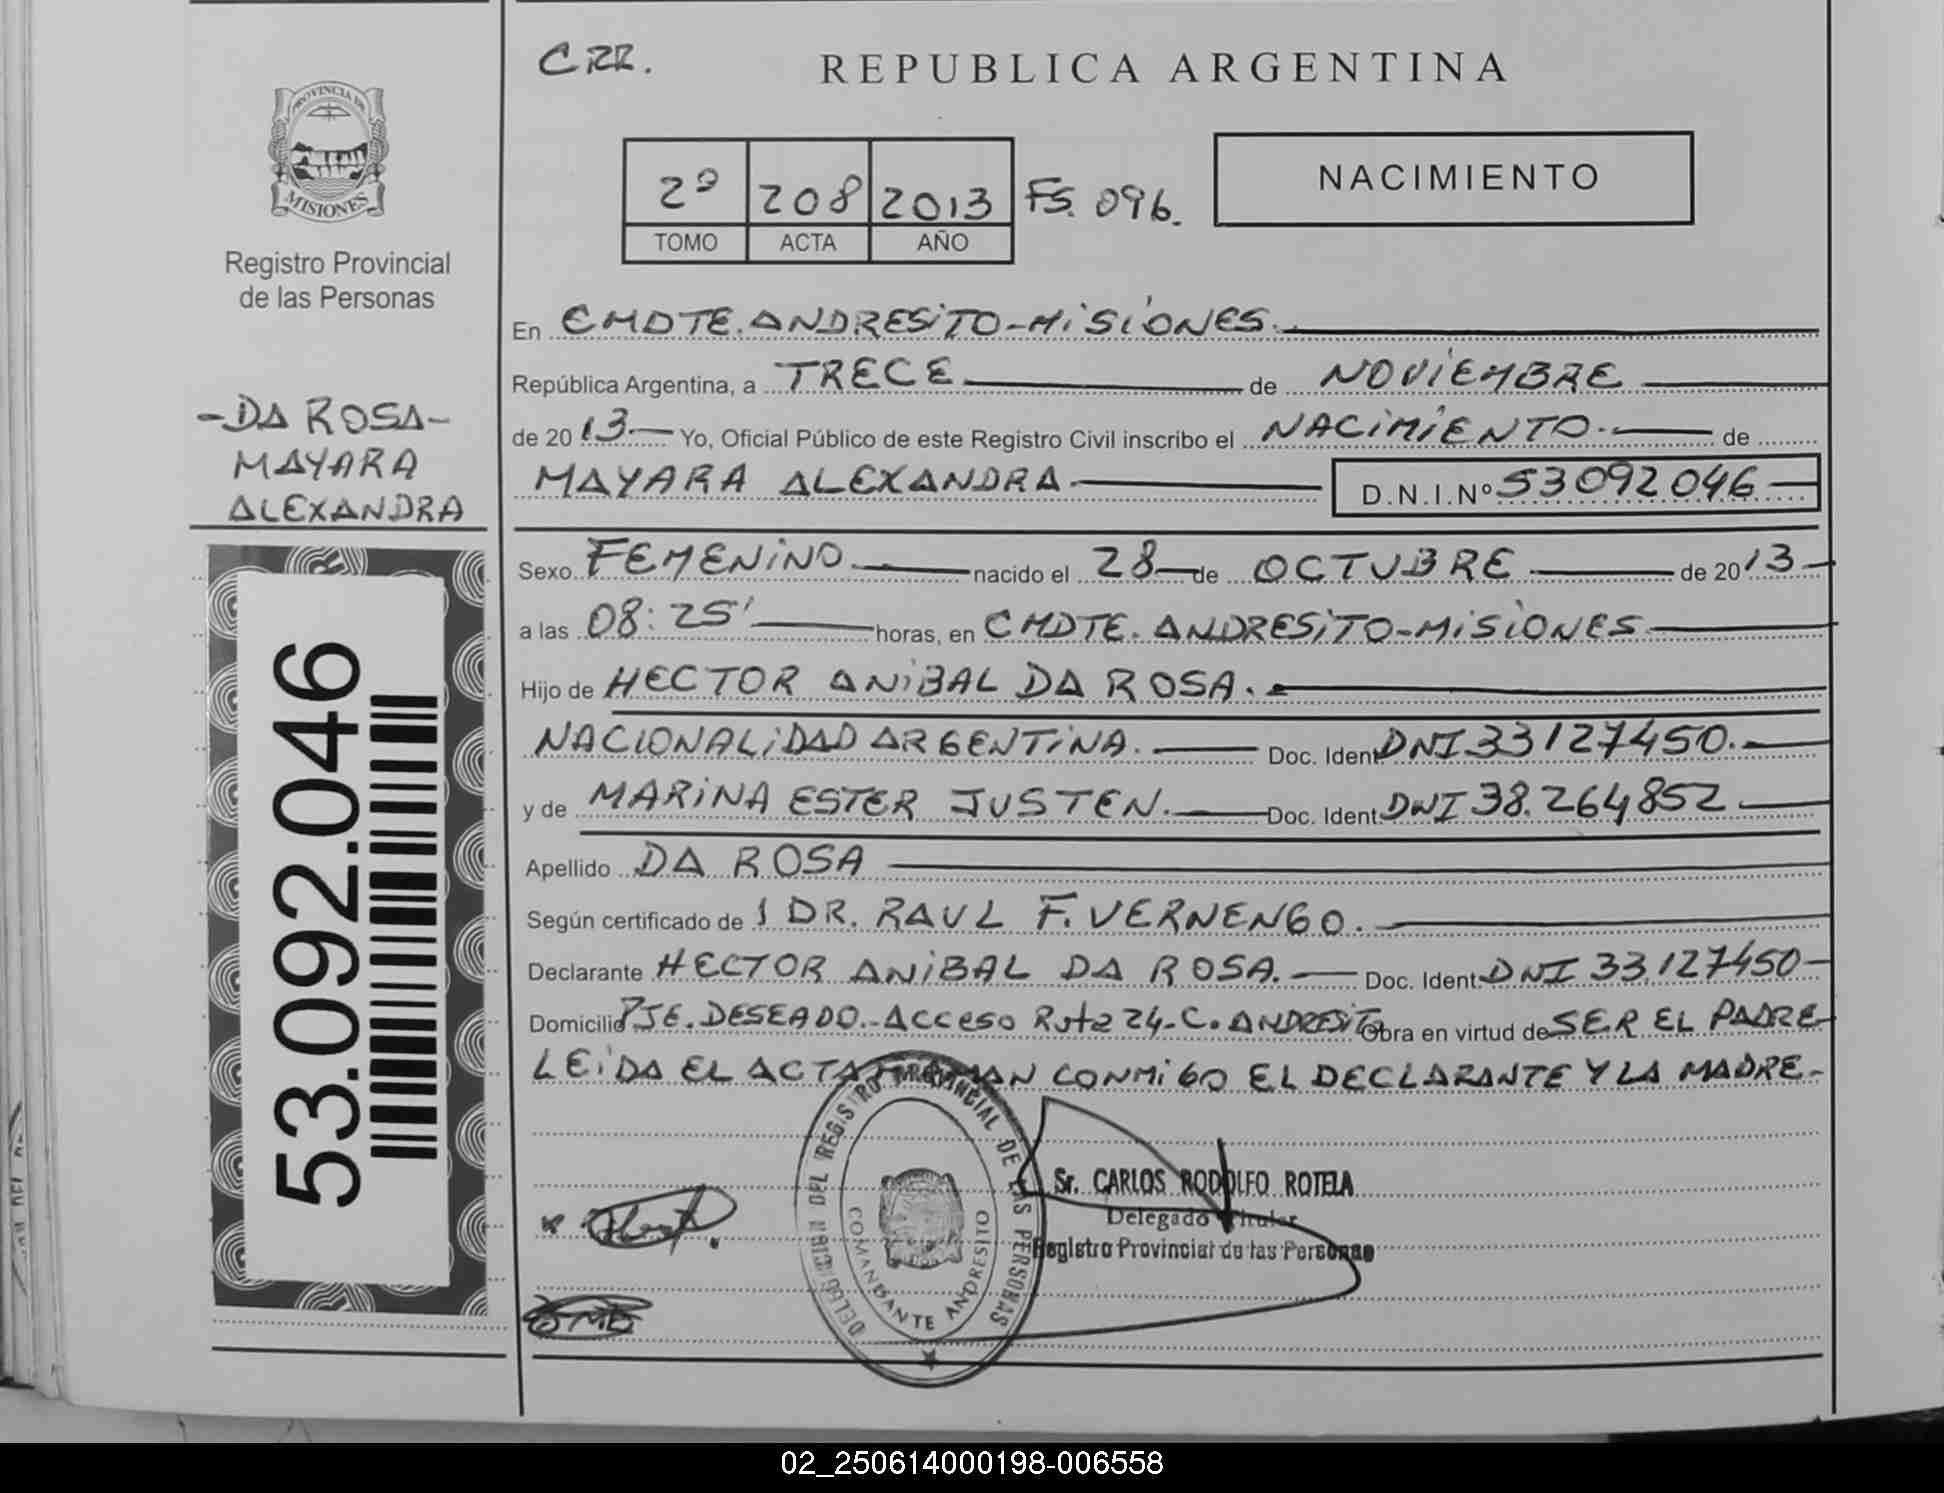 CRR.
REPUBLICA ARGENTINA
PROVINCIA DE
MISIONES
Registro Provincial
de las Personas
2º 208 2013 FS. 096.
TOMO ACTA AÑO
NACIMIENTO
-DA ROSA-
MAYARA
ALEXANDRA
53.092.046
En CMDTE. ANDRESITO-MISIONES.
República Argentina, a TRECE de NOVIEMBRE
de 2013 Yo, Oficial Público de este Registro Civil inscribo el NACIMIENTO. de
MAYARA ALEXANDRA D.N.I.Nº 53092046
Sexo FEMENINO nacido el 28 de OCTUBRE de 2013
a las 08:25' horas, en CMDTE. ANDRESITO-MISIONES
Hijo de HECTOR ANIBAL DA ROSA.
NACIONALIDAD ARGENTINA. Doc. Ident DNI 33127450.
y de MARINA ESTER JUSTEN. Doc. Ident. DNI 38.264852
Apellido DA ROSA
Según certificado de 1 DR. RAUL F. VERNENGO.
Declarante HECTOR ANIBAL DA ROSA. Doc. Ident. DNI 33.127450
Domicilio PJE. DESEADO.-Acceso Ruta 24-C. ANDRESITO Obra en virtud de SER EL PADRE
LEIDA EL ACTA FIRMAN CONMIGO EL DECLARANTE Y LA MADRE-
DELEGACION DEL REGISTRO PROVINCIAL DE LAS PERSONAS
COMANDANTE ANDRESITO
Sr. CARLOS RODOLFO ROTELA
Delegado Titular
Registro Provincial de las Personas
02_250614000198-006558